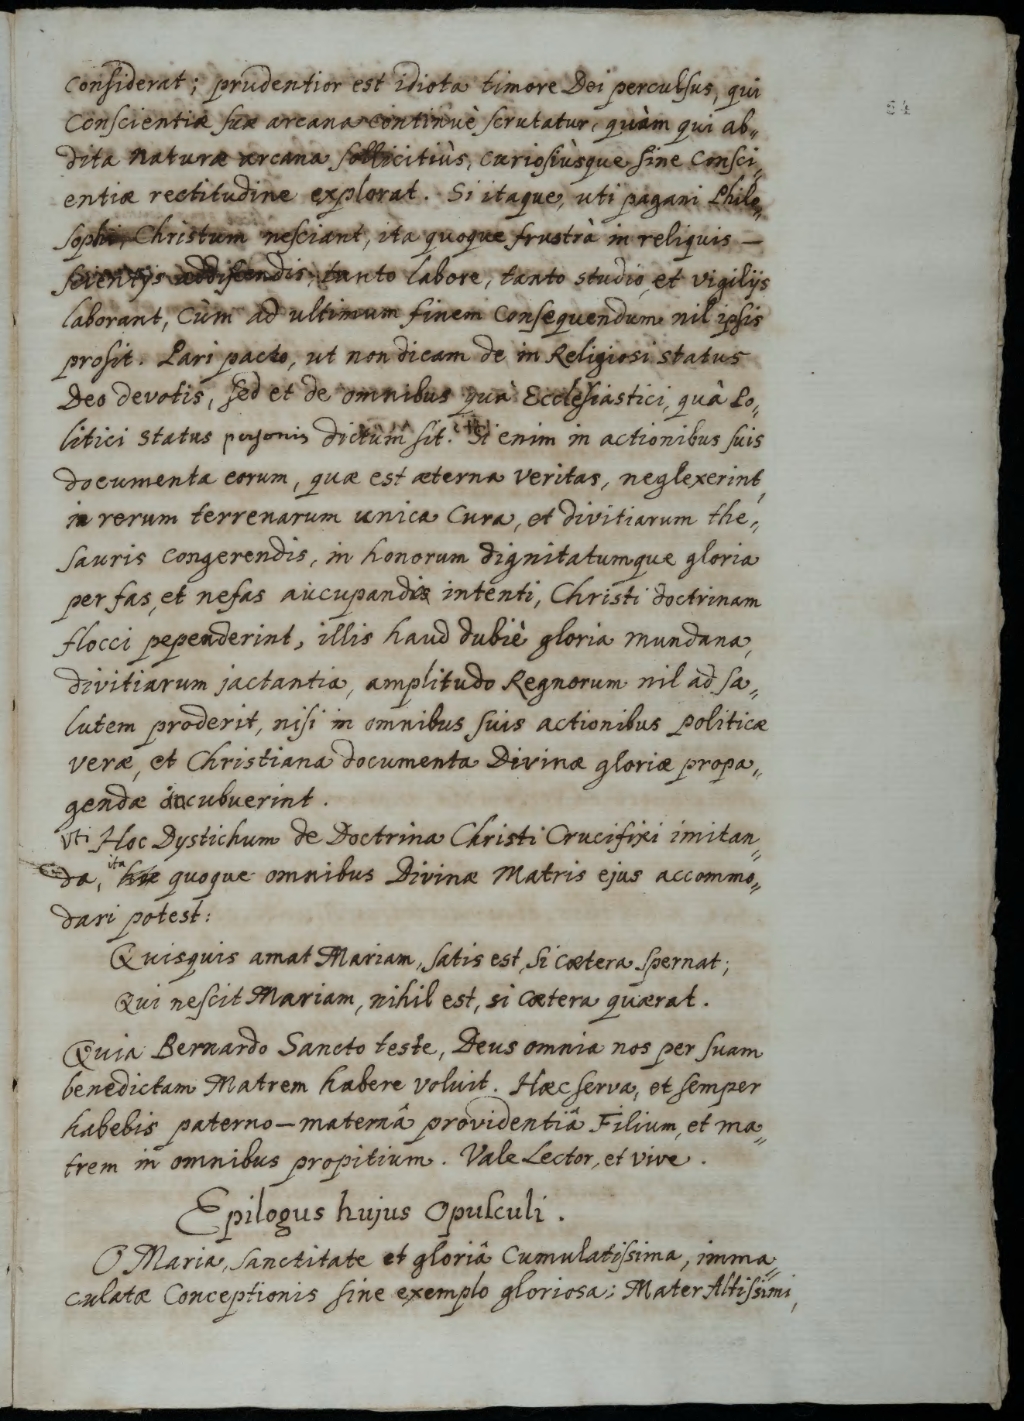 84
considerat; prudentior est idiota timore Dei perculsus, qui
Conscientiæ suæ arcana continuè scrutatur, quàm qui ab„
dita naturæ arcana sollicitiùs, curiosiùsque sine consci„
entiæ rectitudine explorat. Si itaque, uti pagani Philo„
sophi, Christum nesciant, ita quoque frustrà in reliquis —
scientijs addiscendis, tanto labore, tanto studio, et vigilijs
laborant, cùm ad ultimum finem consequendum nil ipsis
prosit. Pari pacto, ut non dicam de in Religiosi status
Deo devotis, sed et de omnibus quà Ecclesiastici, quâ Po„
litici status personis dictum sit. Si enim in actionibus suis
documenta eorum, quæ est æterna veritas, neglexerint,
in rerum terrenarum unica cura, et divitiarum the„
sauris congerendis, in honorum dignitatumque gloria
per fas, et nefas aucupandis intenti, Christi doctrinam
flocci pependerint, illis haud dubiè gloria mundana,
divitiarum jactantia, amplitudo Regnorum nil ad sa„
lutem proderit, nisi in omnibus suis actionibus politicæ
veræ, et Christiana documenta Divinæ gloriæ propa„
gendæ incubuerint.
Uti Hoc Dystichum de Doctrina Christi Crucifixi imitan„
da, ita quoque omnibus Divinæ Matris ejus accommo„
dari potest:
Quisquis amat Mariam, satis est, si cætera spernat;
Qui nescit Mariam, nihil est, si cætera quærat.
Quia Bernardo Sancto teste, Deus omnia nos per suam
benedictam Matrem habere voluit. Hæc serva, et semper
habebis paterno—maternâ providentiâ Filium, et ma„
trem in omnibus propitium. Vale Lector, et vive.
Epilogus hujus Opusculi.
O Maria, sanctitate et gloriâ cumulatissima, imma„
culatæ Conceptionis sine exemplo gloriosa; Mater Altissimi,